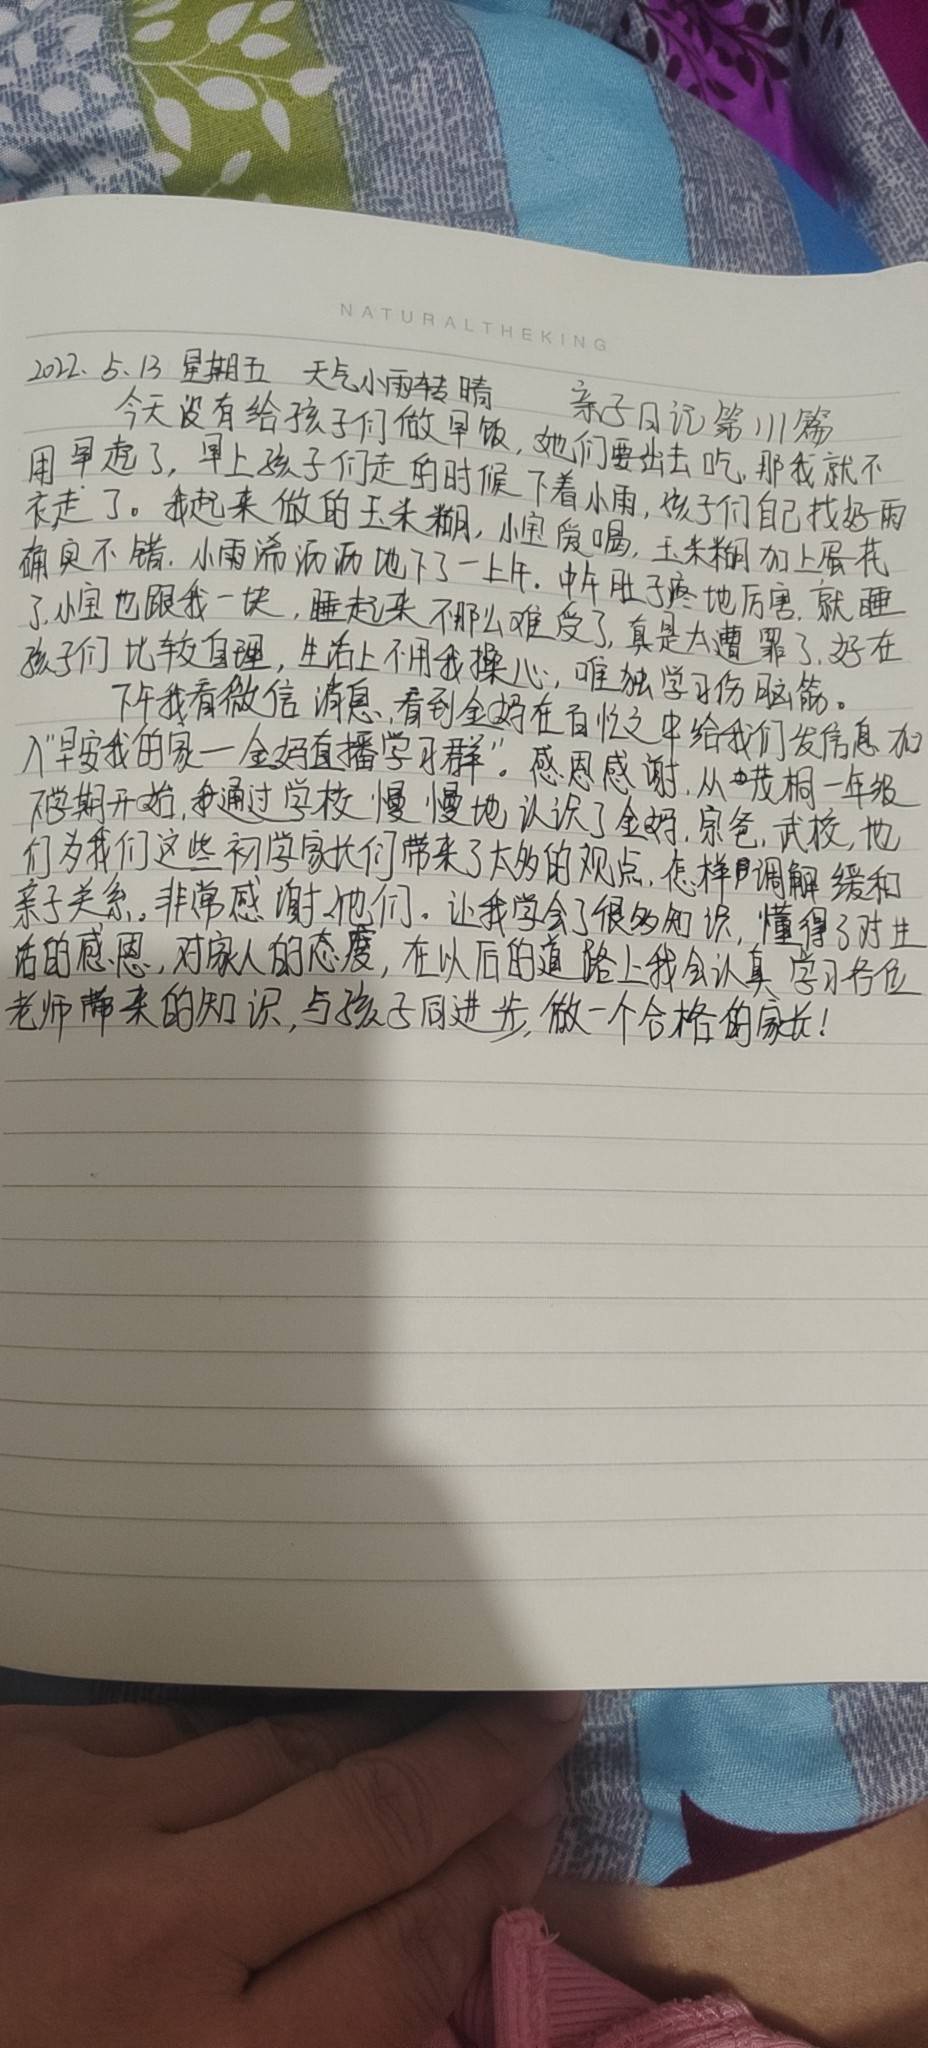 NATURALTHEKING
2022.5.13 星期五 天气小雨转晴 亲子日记第111篇
今天没有给孩子们做早饭,她们要出去吃,那我就不
用早起了,早上孩子们走的时候下着小雨,孩子们自己找好雨
衣走了。我起来做的玉米糊,小宝爱喝,玉米糊加上蛋花
确实不错.小雨淅沥沥地下了一上午.中午肚子疼地厉害.就睡
了.小宝也跟我一块,睡起来不那么难受了,真是太遭罪了.好在
孩子们比较自理,生活上不用我操心,唯独学习伤脑筋。
下午我看微信消息,看到金妈在百忙之中给我们发信息加
入"早安我的家一金妈直播学习群"。感恩感谢.从茂桐一年级
下学期开始,我通过学校慢慢地认识了金妈,宗爸,武校,他
们为我们这些初学家长们带来了太多的观点.怎样调解缓和
亲子关系。非常感谢他们。让我学会了很多知识,懂得了对生
活的感恩,对家人的态度,在以后的道路上我会认真学习各位
老师带来的知识,与孩子同进步,做一个合格的家长!